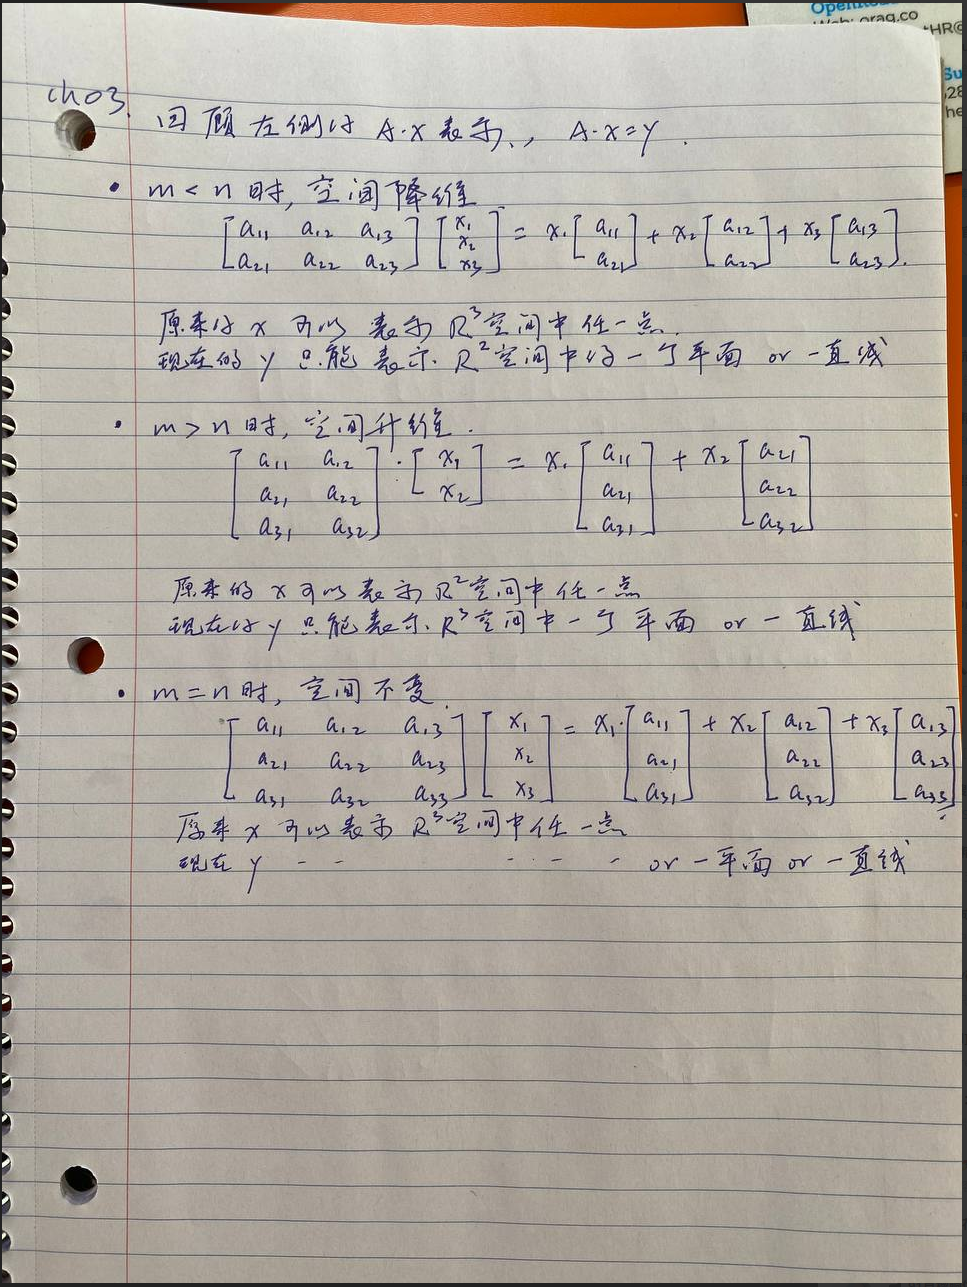 Open
Web: orag.co
HR@
Su
28
he
ch03.
回顾左侧的 A·x 表示, A·x=y.
• m < n 时, 空间降维
[a11 a12 a13; a21 a22 a23] [x1; x2; x3] = x1 [a11; a21] + x2 [a12; a22] + x3 [a13; a23].
原来的 x 可以 表示 R³空间中任一点.
现在的 y 只能 表示. R²空间中的一个平面 or 一直线
• m > n 时, 空间升维.
[a11 a12; a21 a22; a31 a32] · [x1; x2] = x1 [a11; a21; a31] + x2 [a21; a22; a32]
原来的 x 可以表示 R²空间中任一点
现在的 y 只能表示. R³空间中一个 平面 or 一直线
• m = n 时, 空间不变.
[a11 a12 a13; a21 a22 a23; a31 a32 a33] [x1; x2; x3] = x1· [a11; a21; a31] + x2 [a12; a22; a32] + x3 [a13; a23; a33]
原来 x 可以表示 R³空间中任一点
现在 y - - - - - - or 一平面 or 一直线